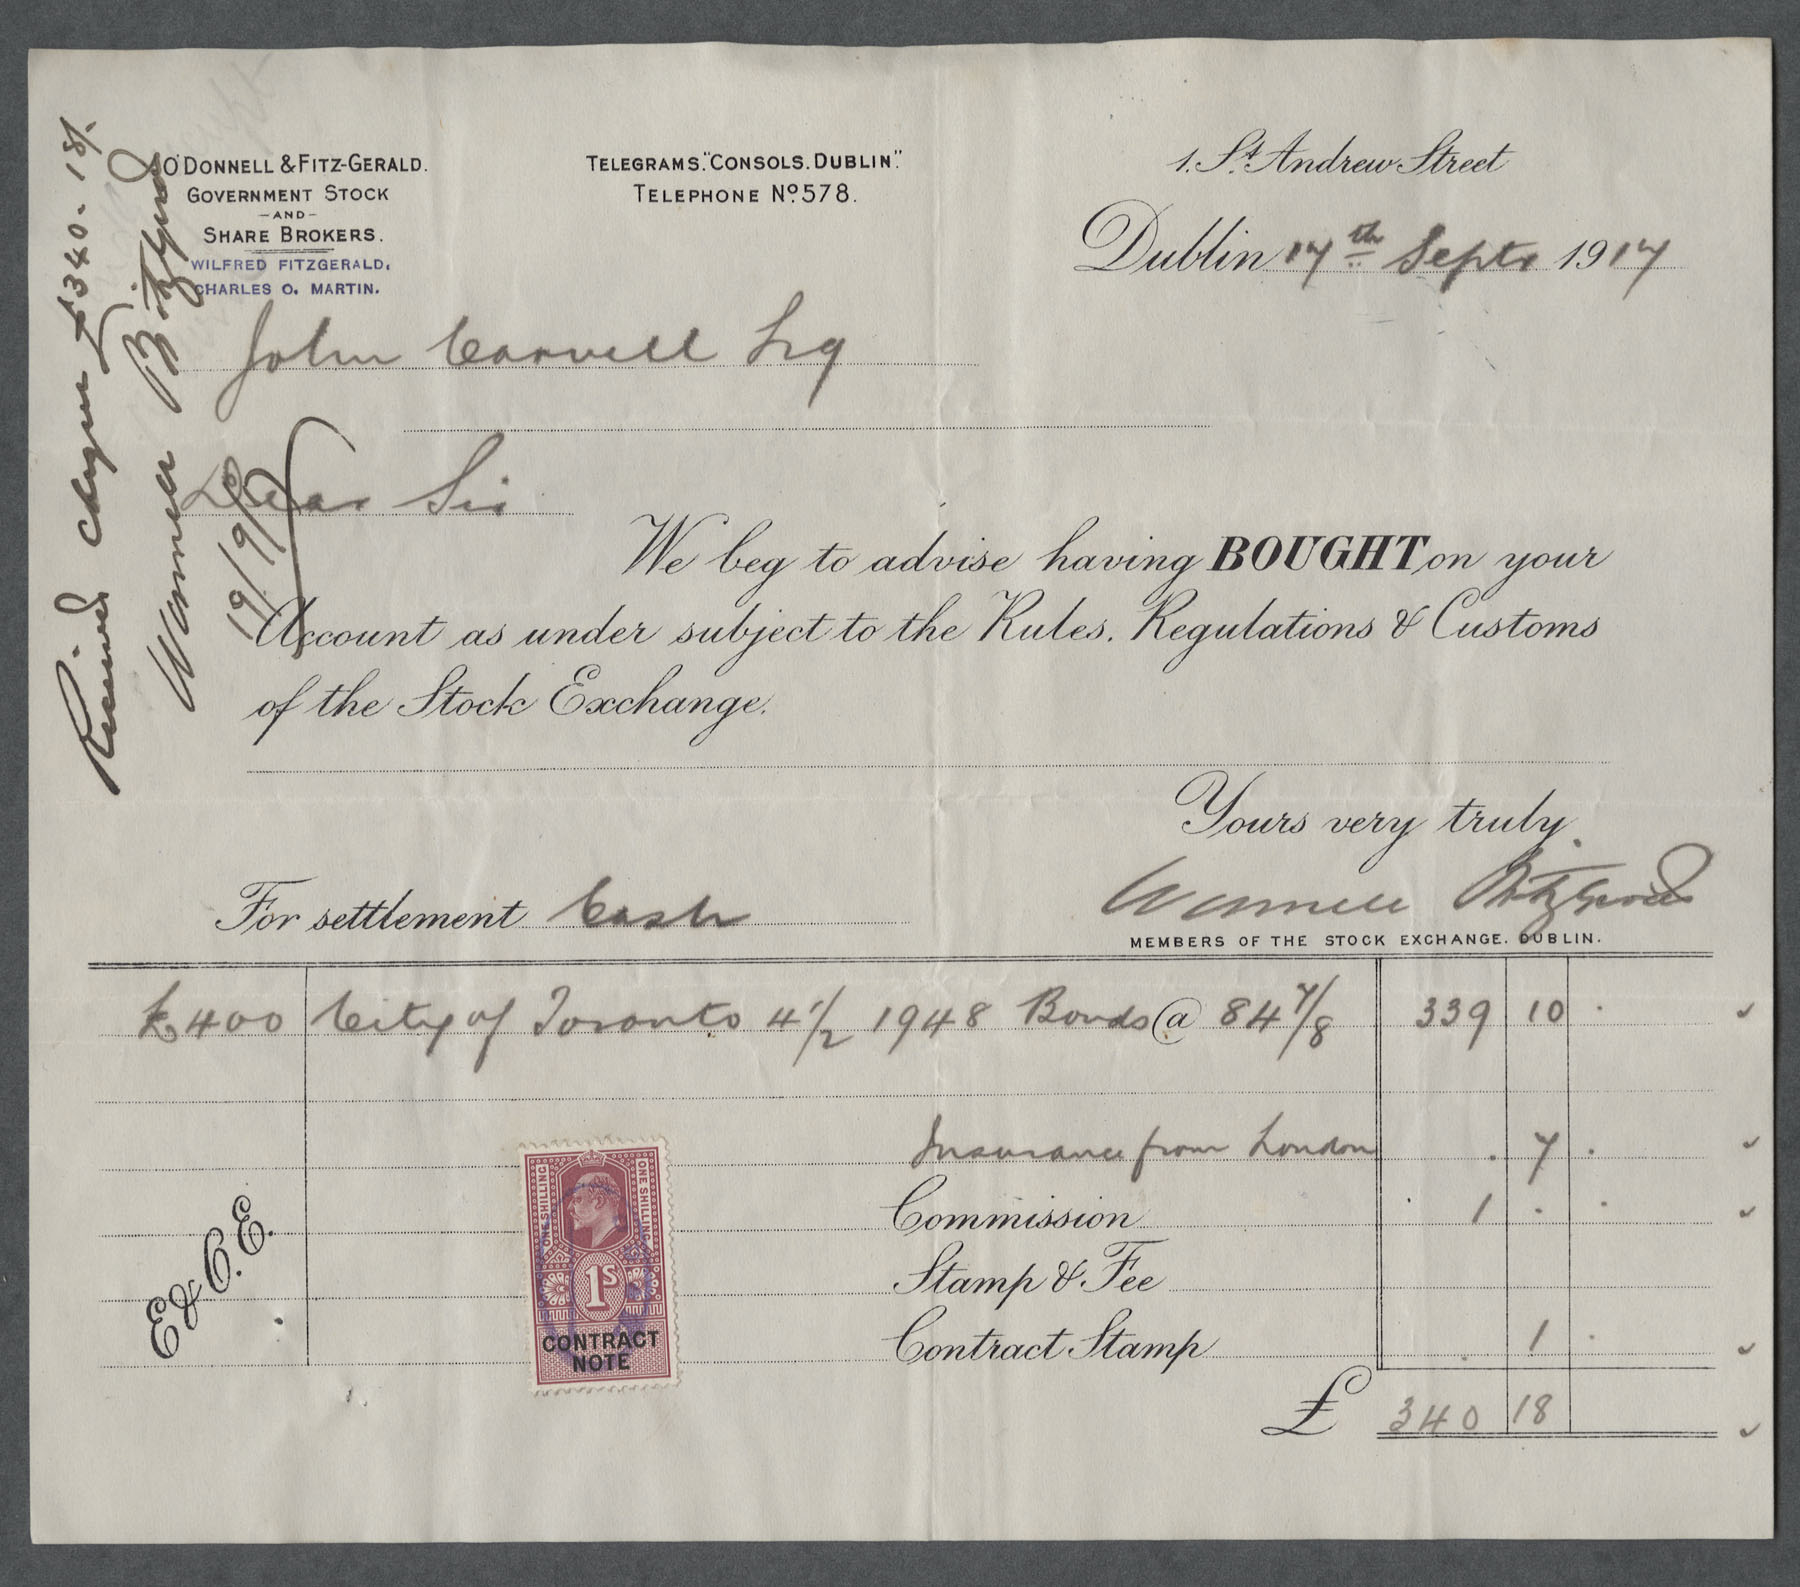 O'DONNELL & FITZ-GERALD.
GOVERNMENT STOCK
-AND-
SHARE BROKERS.
WILFRED FITZGERALD.
CHARLES O. MARTIN.
TELEGRAMS. "CONSOLS. DUBLIN."
TELEPHONE No. 578.
1. St. Andrew Street
Dublin 17th Septr 1917
John Carvell Esq
Dear Sir
We beg to advise having BOUGHT on your
Account as under subject to the Rules, Regulations & Customs
of the Stock Exchange.
Yours very truly.
For settlement Cash
O'Donnell & Fitzgerald
MEMBERS OF THE STOCK EXCHANGE. DUBLIN.
£400 City of Toronto 4 1/2 1948 Bonds @ 84 7/8 339 10 .
Insurance from London . 7 .
Commission 1 . .
Stamp & Fee
Contract Stamp . 1 .
£ 340 18
E & O. E.
ONE SHILLING
ONE SHILLING
1S
CONTRACT
NOTE
Received cheque £340. 18/-
O'Donnell Fitzgerald
19/9/17